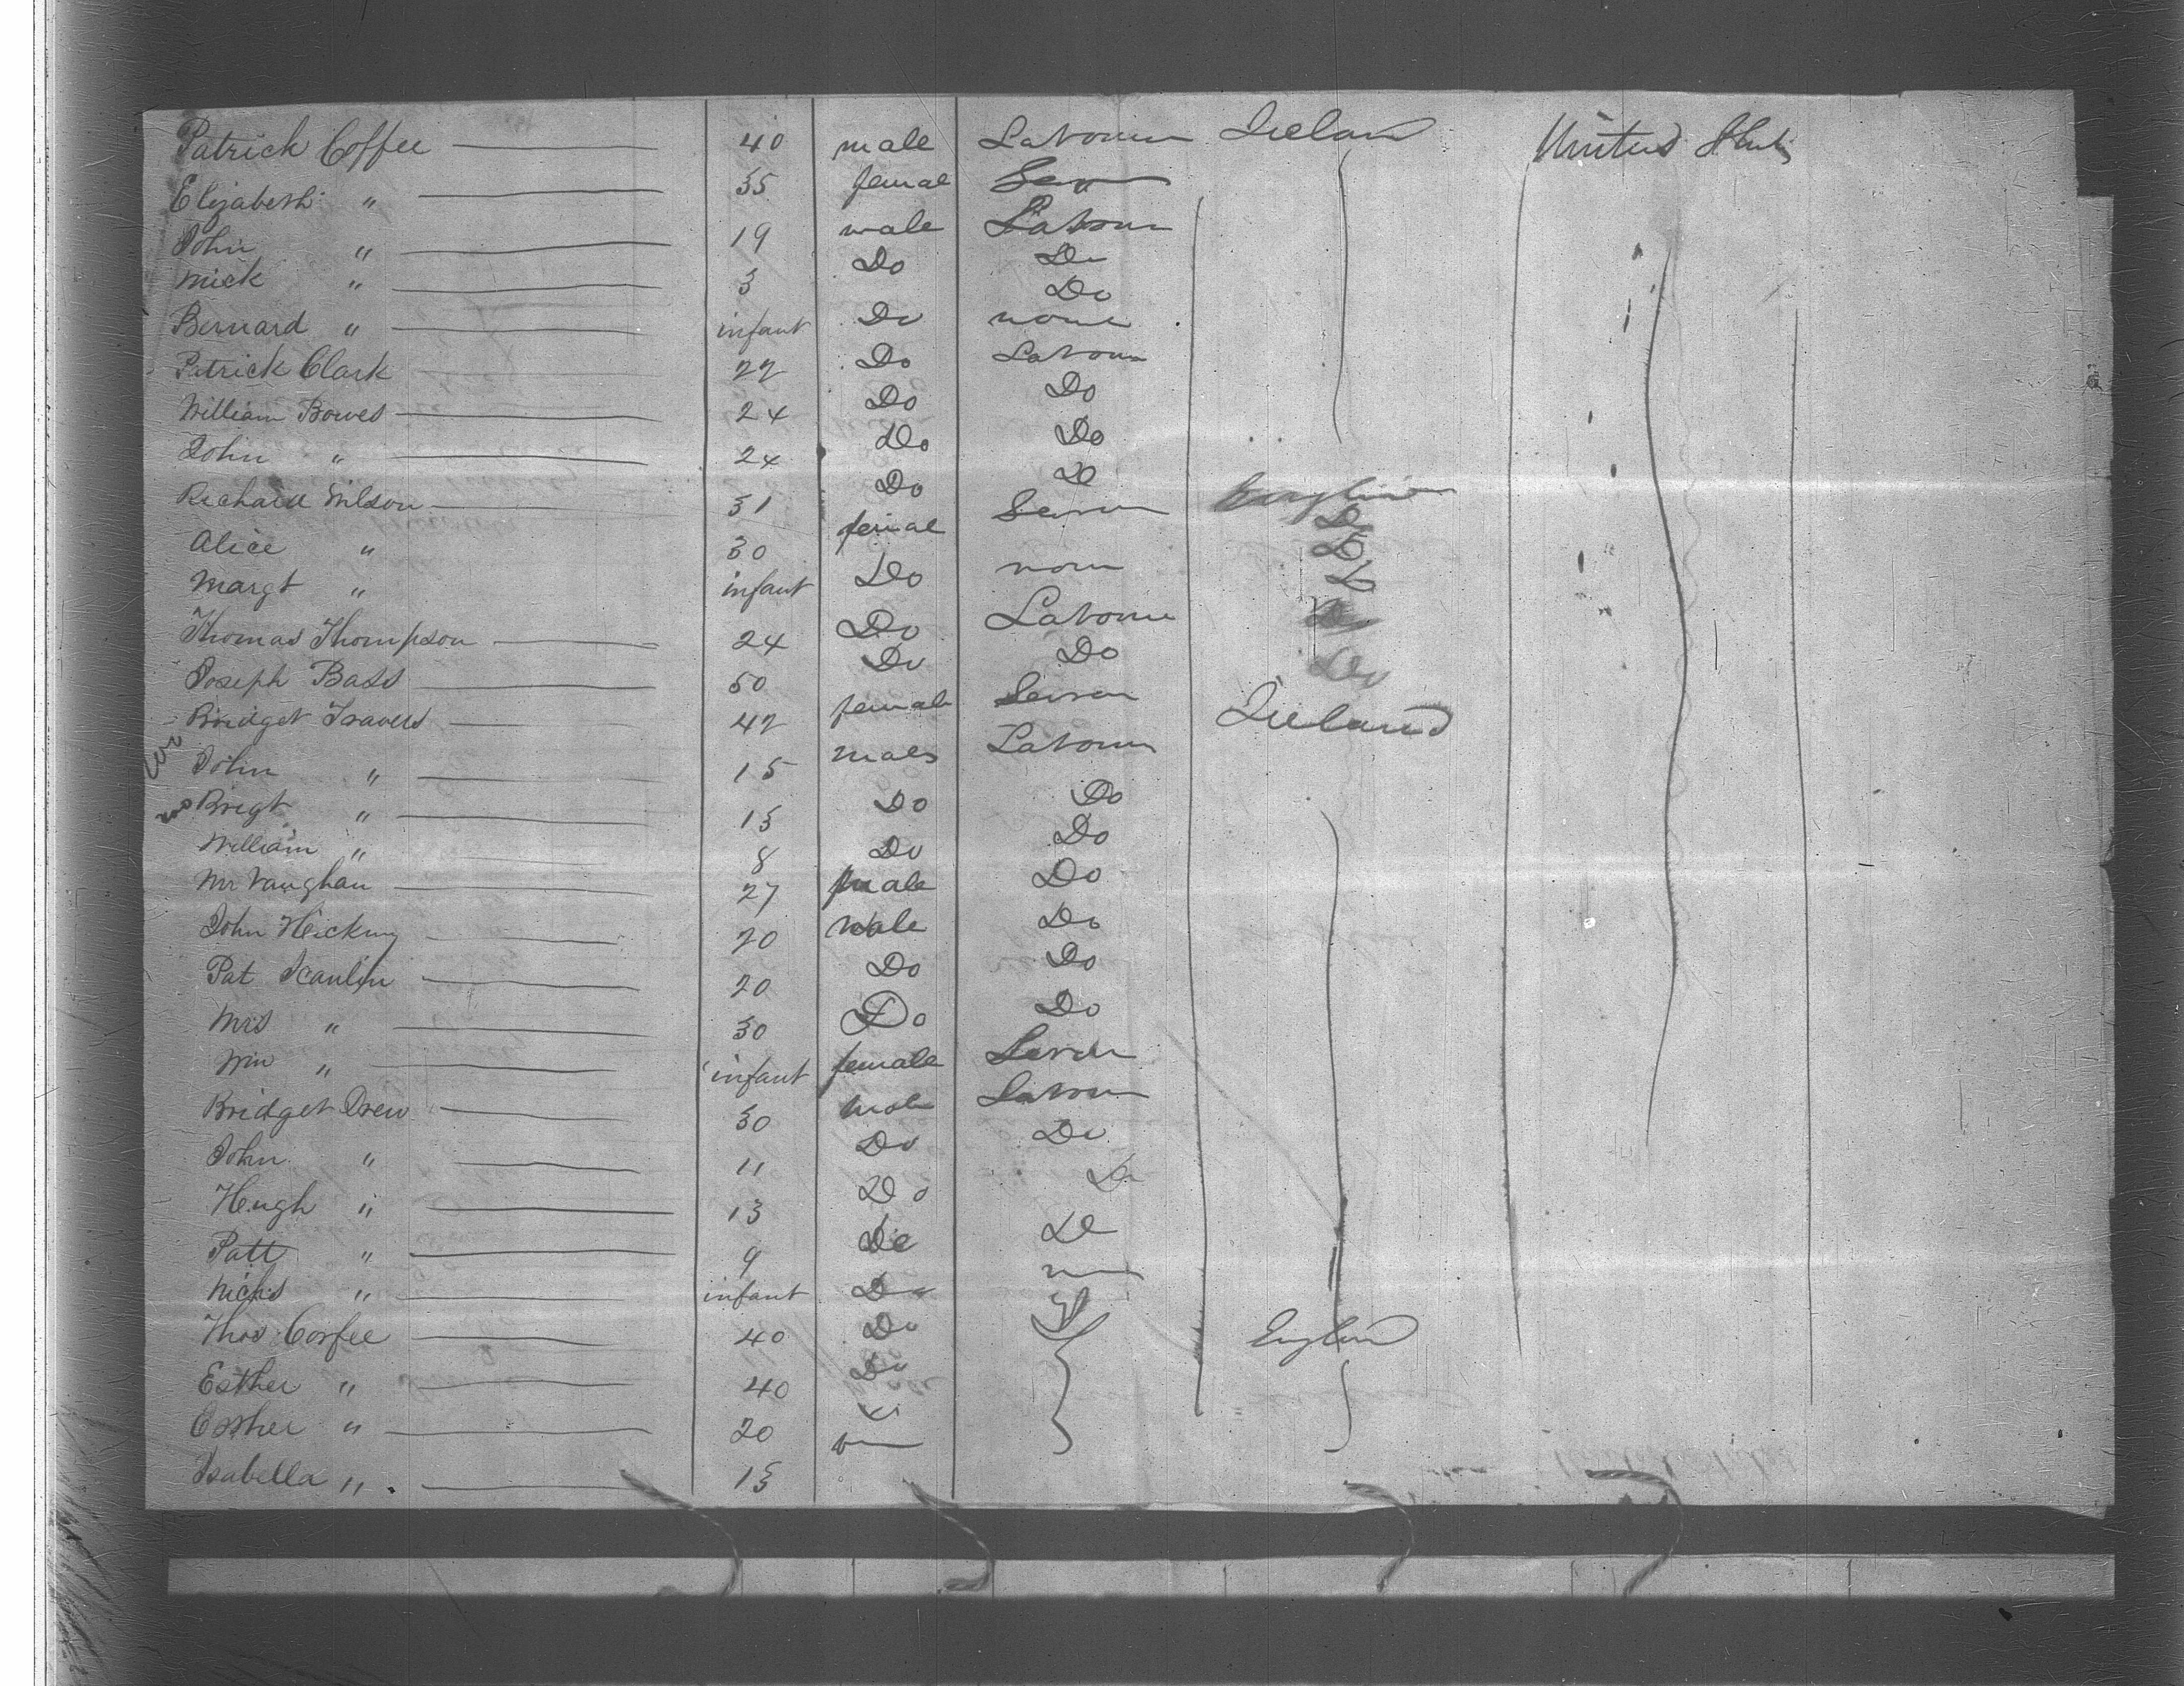 Patrick Coffee 40 male Labourer Ireland United States
Elizabeth " 35 female
John " 19 male Labour
Mick " 3 Do Do
Bernard " infant Do none
Patrick Clark 22 Do Labour
William Bowes 24 Do Do
John " 24 Do Do
Richard Wilson 31 Do Do
Alice " 30 female Do
Margt " infant Do none
Thomas Thompson 24 Do Labour
Joseph Bass 50 Do Do
Bridget Travers 42 female Ireland
John " 15 male Labour
Brigt " 13 Do Do
William " 8 Do Do
Mr Vaughan 27 male Do
John Hickmy 20 male Do
Pat Scanlin 20 Do Do
Mrs " 30 Do Do
Wm " infant female
Bridget Drew 30 male Labour
John " 11 Do Do
Hugh " 13 Do Do
Patt " 9 Do Do
Nichs " infant Do
Thos Corfee 40 Do England
Esther " 40 Do
Esther " 20
Isabella " 13